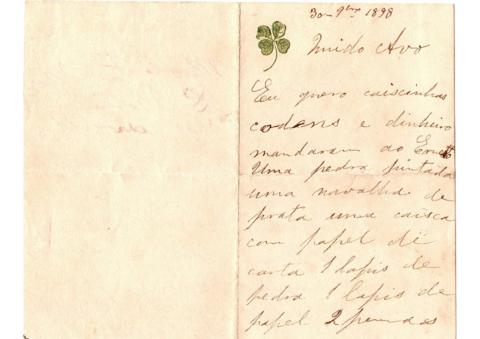 30 - 9bro 1898
Muido Avo
Eu quero caiscinhas
codens e dinheiro
mandaram ao Ernesto
Uma pedra pintada
uma navalha de
prata uma caisca
com papel de
carta 1 lapis de
pedra 1 lapis de
papel 2 pennas